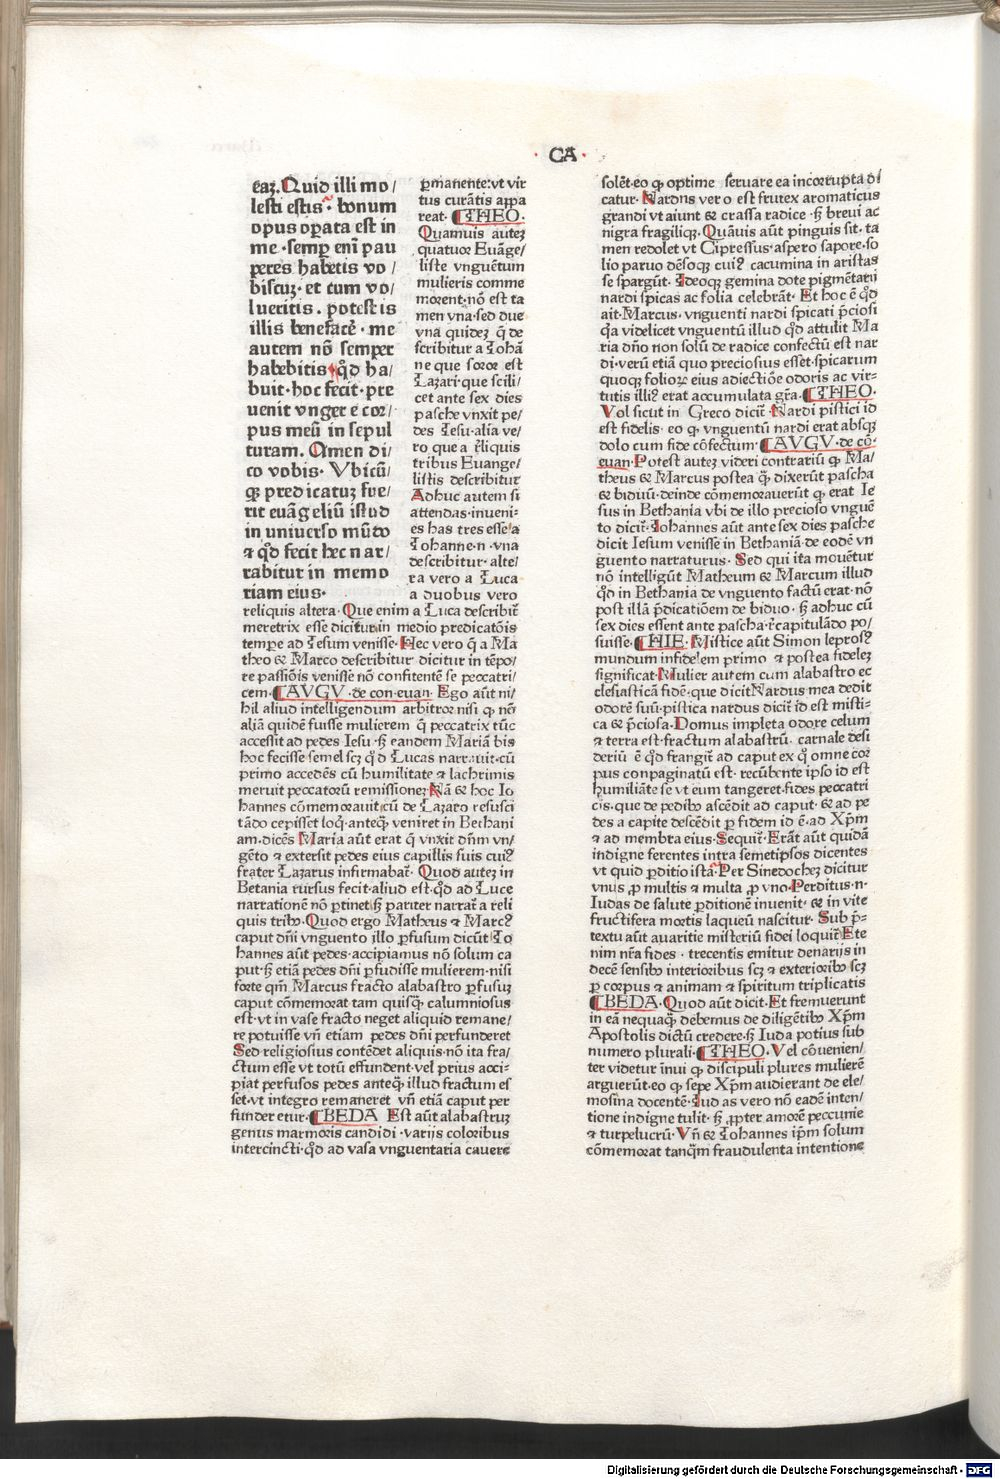 · CA ·
eaꝫ. Quid illi mo/
lesti estis · bonum
opus oꝑata est in
me · semꝑ eni pau
peres habetis vo /
biscuꝫ· et cum vo/
lueritis . potestis
illis benefacē · me
autem nō semper
habebitis qd̄ ha/
buit · hoc fecit · pre
uenit vngere cor/
pus meū in sepul
turam. Amen di/
co vobis· Vbicū/
qꝫ predicatuꝫ fue/
rit euāgeliū istud
in uniuerso mūdo
⁊ qd̄ fecit hec nar/
rabitur in memo
riam eius·
ꝑmanente:vt vir
tus curātis appa
reat· THEO·
Quamuis auteꝫ
quatuor Euāge/
liste vnguētum
mulieris comme
morent·nō est ta
men vna·sed due
vna quideꝫ q̄ de
scribitur a Iohā
ne que soror est
Lazari·que scili/
cet ante sex dies
pasche vnxit pe/
des Iesu·alia ve/
ro que a rͥliquis
tribus Euange/
listis describitur
Adhuc autem si
attendas·inueni-
es has tres esse·a
Iohanne·n·vna
describitur·alte/
ra vero a Luca
a duobus vero
reliquis altera· Que enim a Luca describit̄
meretrix esse dicitur·in medio predicatōis
tempe ad Iesum venisse· Hec vero q̄ a Ma
theo & Marco describitur dicitur in tēpo/
re passiōis venisse nō confitentē se peccatri/
cem· AVGV·de con·euan· Ego aūt ni/
hil aliud intelligendum arbitror nisi ꝙ nō
aliā quidē fuisse mulierem q̄ peccatrix tūc
accessit ad pedes Iesu·sꝫ eandem Mariā bis
hoc fecisse·semel scꝫ qd̄ Lucas narrauit·cū
primo accedēs cū humilitate ⁊ lachrimis
meruit peccatorū remissioneꝫ Nā & hoc Io
hannes cōmemorauit·cū de Lazaro resusci
tādo cepisset loq̄·anteq̄ veniret in Bethani
am·dicēs Maria aūt erat q̄ vnxit dn̄m vn/
gēto ⁊ extersit pedes eius capillis suis cuiꝰ
frater Lazarus infirmabat̄· Quod auteꝫ in
Betania rursus fecit·aliud est·qd̄ ad Luce
narrationē nō ꝑtinet·sꝫ pariter narrat̄ a reli
quis tribꝰ·Quod ergo Matheus ⁊ Marcꝰ
caput dn̄i vnguento illo ꝑfusum dicūt Io
hannes aūt pedes·accipiamus nō solum ca
put·sꝫ etiā pedes dn̄i ꝑfudisse mulierem·nisi
forte qm̄ Marcus fracto alabastro ꝑfusuꝫ
caput cōmemorat tam quisq̄ calumniosus
est·vt in vase fracto neget aliquid remane/
re potuisse vn̄ etiam pedes dn̄i perfunderet
Sed religiosius contēdet aliquis·nō ita fra/
ctum esse vt totū effundent·vel prius acci-
piat perfusos pedes anteq̄ illud fractum es
set·vt integro remaneret vn̄ etiā caput per
funderetur· BEDA Est aūt alabastruꝫ
genus marmoris candidi ·varijs coloribus
intercincti·qd̄ ad vasa vnguentaria cauere
solēt·eo ꝙ optime seruare ea incorrupta di
catur· Nardus vero est frutex aromaticus
grandi vt aiunt & crassa radice ·sꝫ breui ac
nigra fragiliqꝫ· Quāuis aūt pinguis sit·ta
men redolet vt Cipressus·aspero sapore·fo
lio paruo dēsoqꝫ cuiꝰ cacumina in aristas
se spargūt· Ideoqꝫ gemina dote pigmētarii
nardi spicas ac folia celebrāt· Et hoc ē qd̄
ait·Marcus·vnguenti nardi spicati p̄ciosi
qͥa videlicet vnguentū illud qd̄ attulit Ma
ria dn̄o non solū de radice confectū est nar
di·verū etiā quo preciosius esset·spicarum
quoqꝫ folioꝝ eius adiectiōe odoris ac vir-
tutis illiꝰ erat accumulata gr̄a· THEO·
Vel sicut in Greco dicit̄ Nardi pistici id
est fidelis· eo ꝙ vnguentū nardi erat absqꝫ
dolo cum fide cōfectum· AVGV·de cō·
euan·Potest auteꝫ videri contrariū ꝙ Ma/
theus & Marcus postea q̄ dixerūt pascha
& biduū·deinde cōmemorauerūt ꝙ erat Ie
sus in Bethania vbi de illo precioso vnguē
to dicit̄· Iohannes aūt ante sex dies pasche
dicit Iesum venisse in Bethaniā·de eodē vn
guento narraturus· Sed qui ita mouētur
nō intelligūt Matheum & Marcum illud
qd̄ in Bethania de vnguento factū erat·nō
post illā p̄dicatiōem de biduo · sꝫ adhuc cū
sex dies essent ante pascha·r̄capitulādo po/
suisse· HIE· Mistice aūt Simon leprosꝰ
mundum infidelem primo ⁊ postea fideleꝫ
significat·Mulier autem cum alabastro ec
clesiasticā fidē·que dicit Nardus mea dedit
odorē suū·pistica nardus dicit̄ id est misti-
ca & p̄ciosa·Domus impleta odore celum
⁊ terra est·fractum alabastrū· carnale desi
deriū ē qd̄ frangit̄ ad caput ex q̄ omne cor
pus conpaginatū est· recūbente ipso id est
humiliāte se vt eum tangeret·fides peccatri
cis·que de pedibꝰ ascēdit ad caput·& ad pe
des a capite descēdit ꝑ fidem id ē·ad Xp̄m
⁊ ad membra eius·Sequit̄·Erāt aūt quidā
indigne ferentes intra semetipsos dicentes
vt quid ꝑditio ista·Per Sinedocheꝫ dicitur
vnus ꝓ multis ⁊ multa ꝓ vno·Perditus·n·
Iudas de salute ꝑditionē inuenit· & in vite
fructifera mortis laqueū nascitur· Sub p̄-
textu aūt auaritie misteriū fidei loquit̄ Ete
nim nr̄a fides · trecentis emitur denarijs in
decē sensibꝰ interioribus scꝫ ⁊ exterioribꝰ scꝫ
ꝑ corpus ⁊ animam ⁊ spiritum triplicatis
BEDA·Quod aūt dicit·Et fremuerunt
in eā nequaq̄ debemus de diligētibꝰ Xp̄m
Apostolis dictū credere·sꝫ Iuda potius sub
numero plurali· THEO·Vel cōuenien/
ter videtur ī̄nui ꝙ discipuli plures mulierē
arguerūt·eo ꝙ sepe Xp̄m audierant de ele/
mosina docentē·Iudas vero nō eadē inten/
tione indigne tulit· sꝫ ꝓpter amorē peccunie
⁊ turpelucrū·Vn̄ & Iohannes ip̄m solum
cōmemorat tanqm̄ fraudulenta intentione
Digitalisierung gefördert durch die Deutsche Forschungsgemeinschaft - DFG